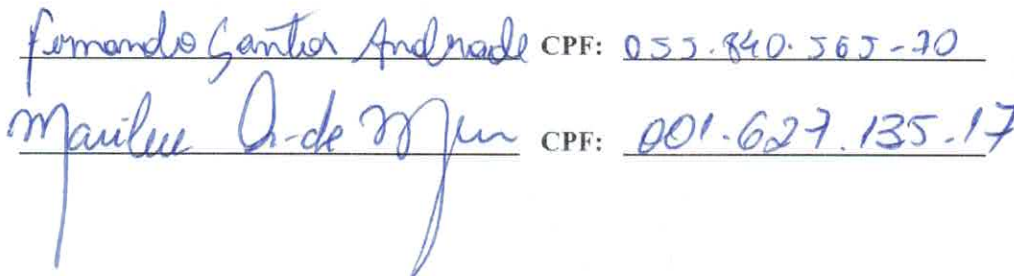 Fernando Santos Andrade CPF: 055.840.565-70
de CPF: 001.627.135-17